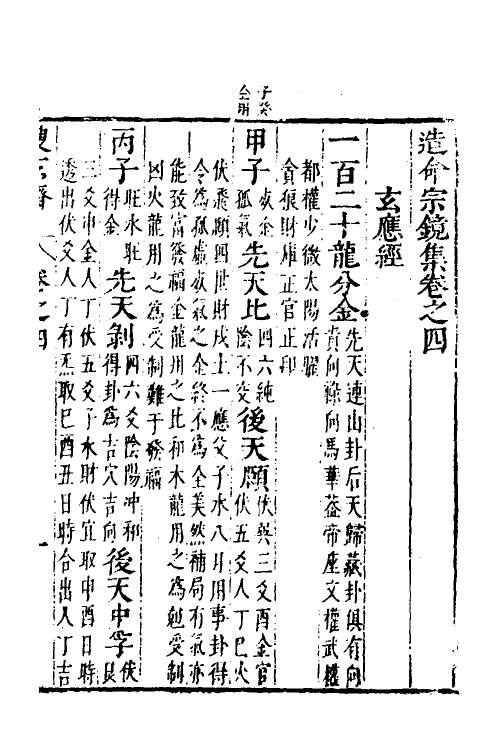 子癸
金明
造命宗鏡集卷之四
玄應經
一百二十龍分金
先天連山卦后天歸藏卦俱有向
貴向祿向馬華蓋帝座文權武權
都權少微太陽活曜
貪狼財庫正官正印
甲子
孤氣
先天比
四六純
陰不交
後天頤
伏巽三爻酉金官
伏五爻人丁巳火
伏飛顯四世財戌土一應父子水八月用事卦得
令為孤虛敗氣之金終不為全美然補局有氣亦
能致富發福金龍用之比和木龍用之為魁受制
凶火龍用之為受制難于發福
丙子
旺水旺
得金
先天剝
四六爻陰陽冲和
得卦為吉穴吉向
後天中孚
伏
艮
三爻申金人丁伏五爻子水財伏宜取申酉日時
透出伏爻人丁有炁取巳酉丑日時合出人丁吉
卷之四
一